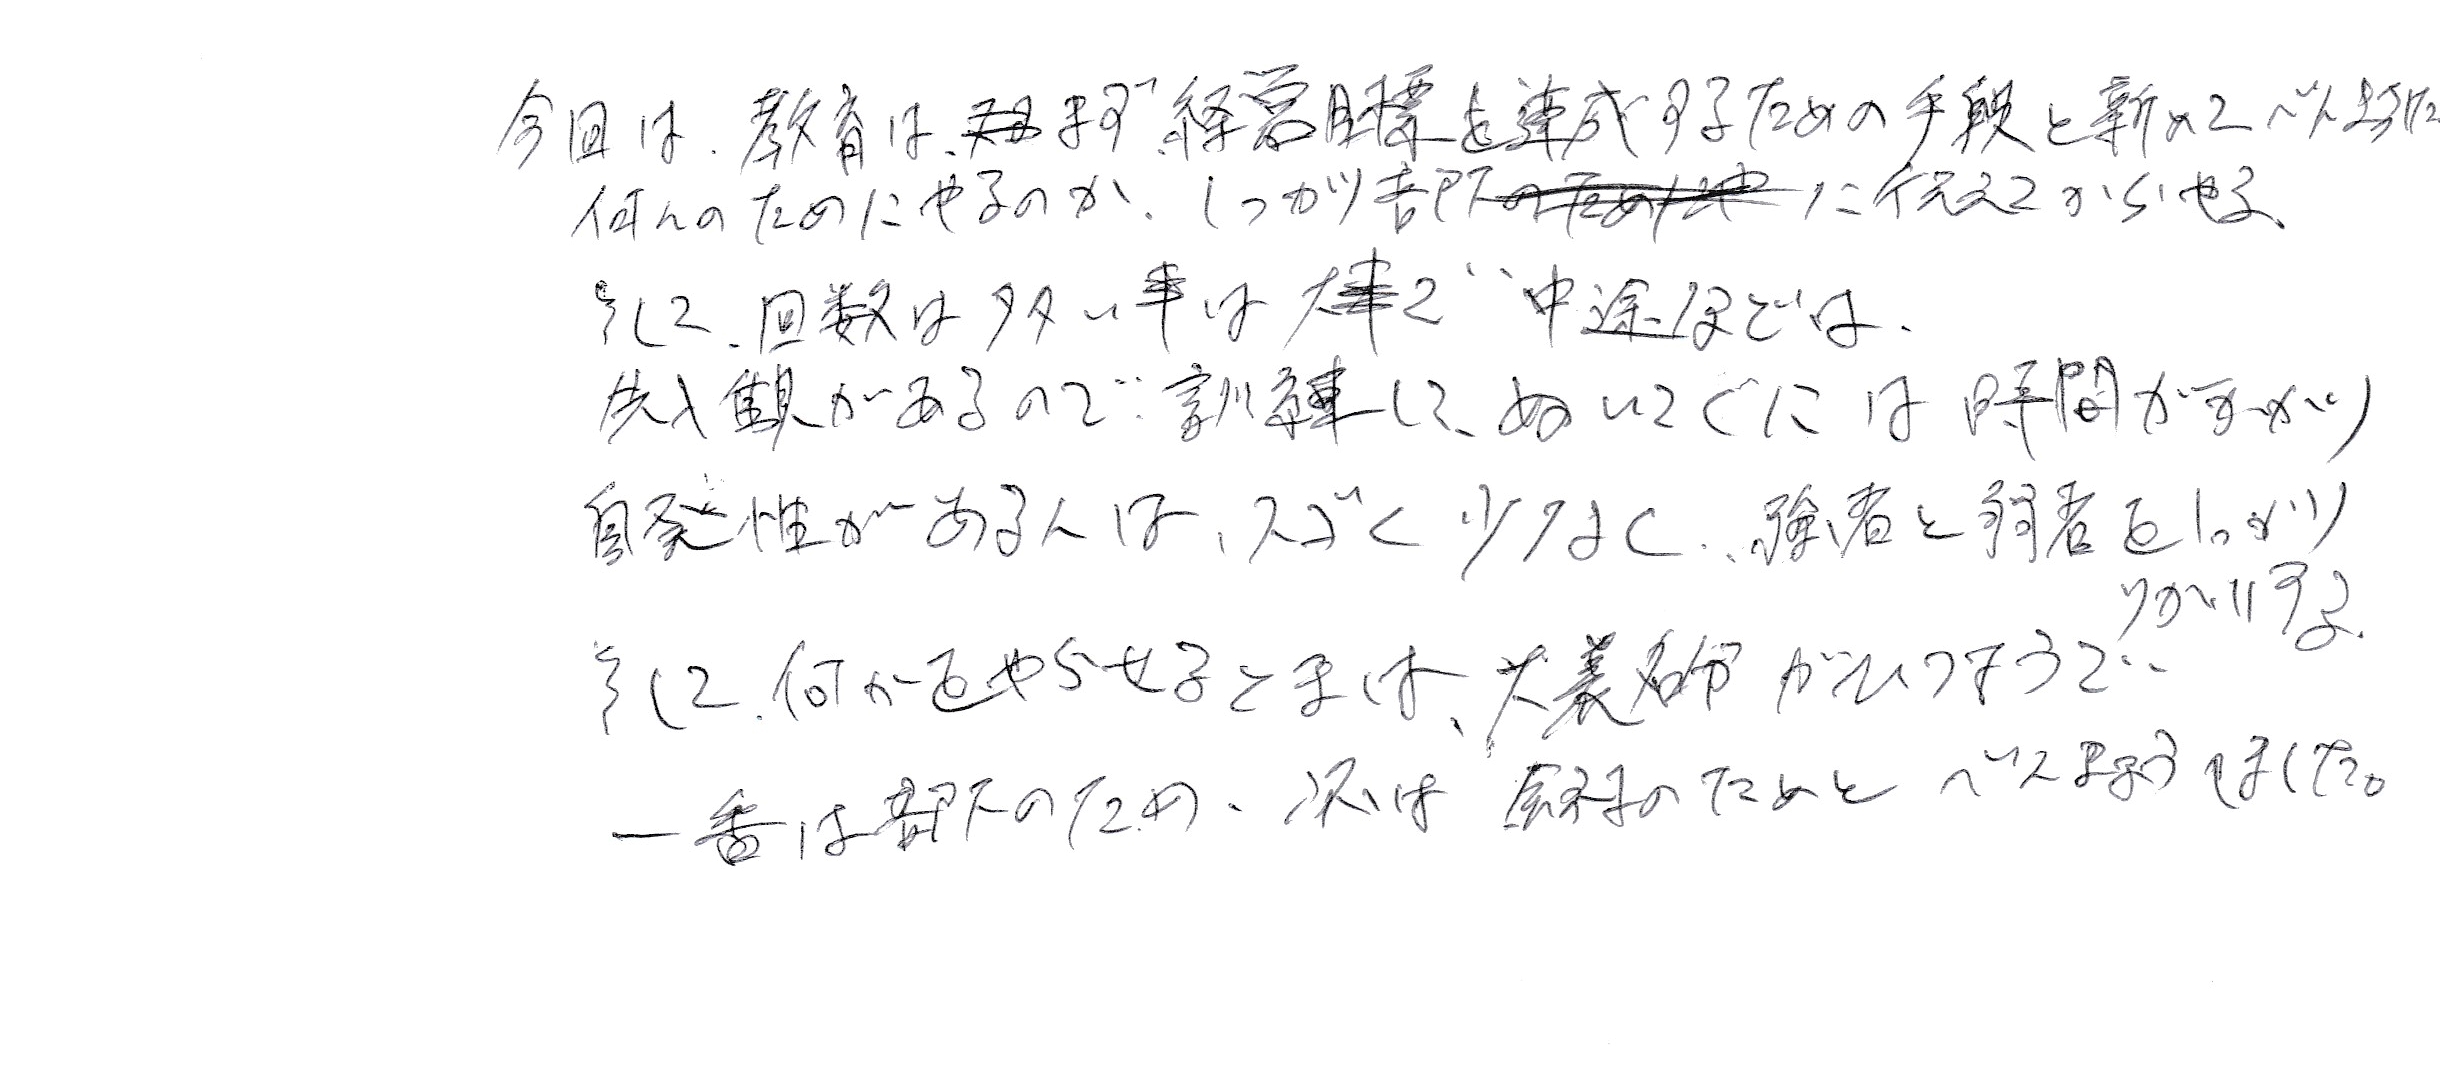 今回は、教育は、まず経営目標を達成するための手段と新めてべんき
何んのためにやるのか、しっかり部下に伝えてからやる、
そして、回数は多い事は大事で中途ほどでは、
先入観があるので訓練して、ぬいてくには時間がかかり
自発性がある人は、スごく少なく、強者と弱者をしっかり
りかいする、
そして、何かをやらせるときは、大義名分がひつようで
一番は部下のため、次は会社のためとべんきょうしました。